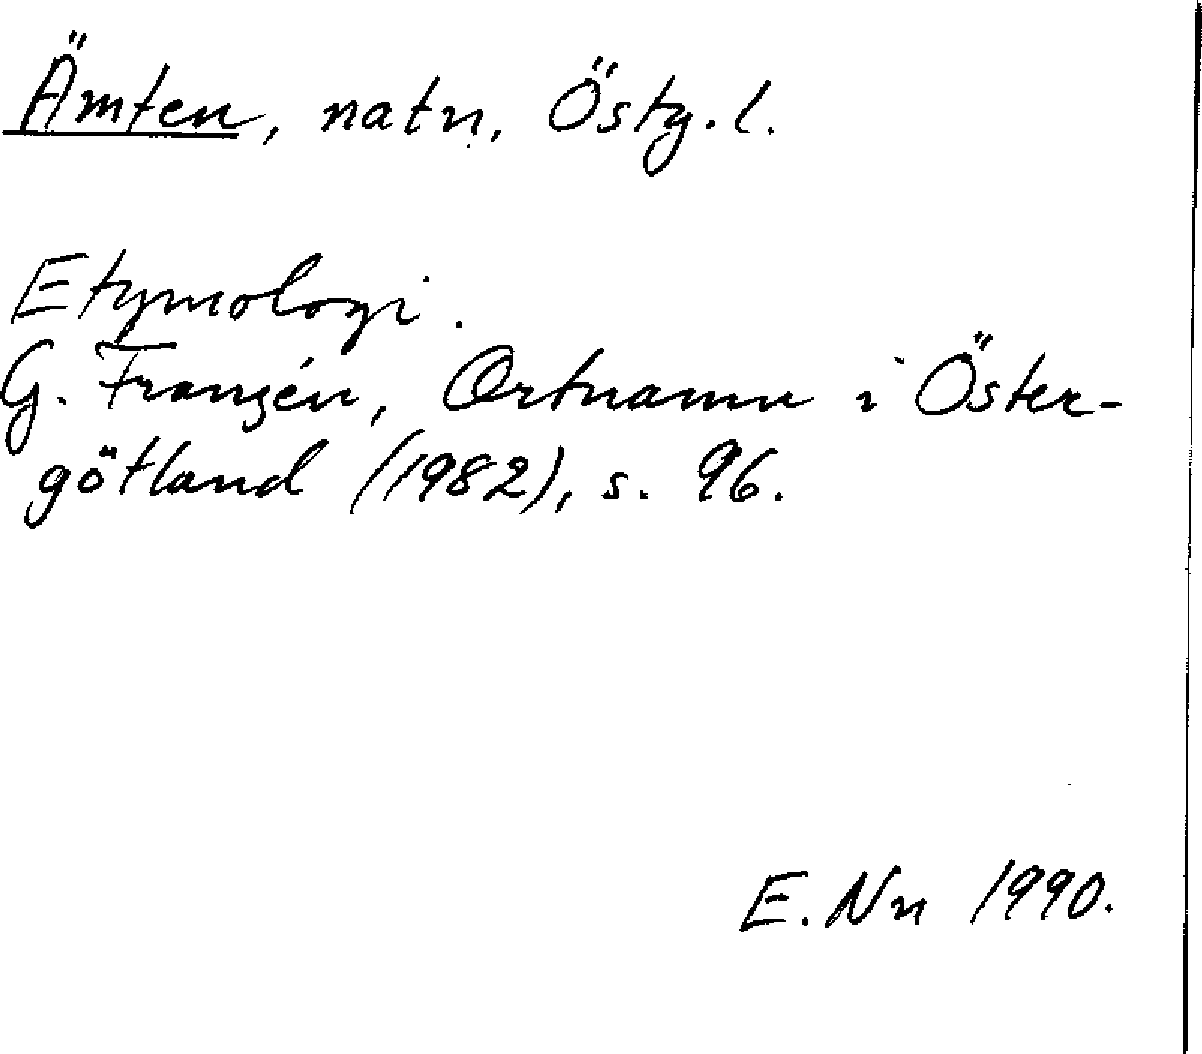 Ämten, natn, Östg. l.
Etymologi.
G. Franzén, Ortnamn i Öster-
götland (1982), s. 96.
E. Nn 1990.